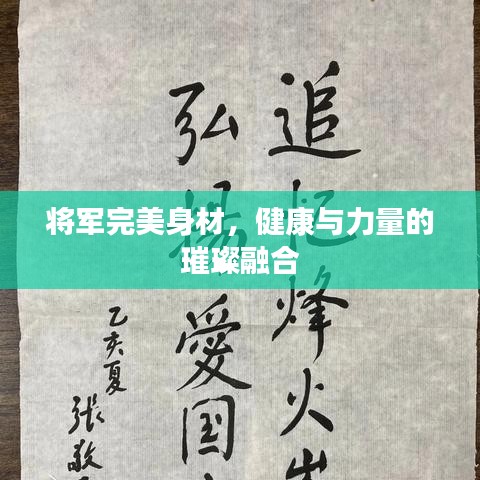 追忆烽火
弘揚愛国
乙亥夏
張敬
将军完美身材，健康与力量的
璀璨融合